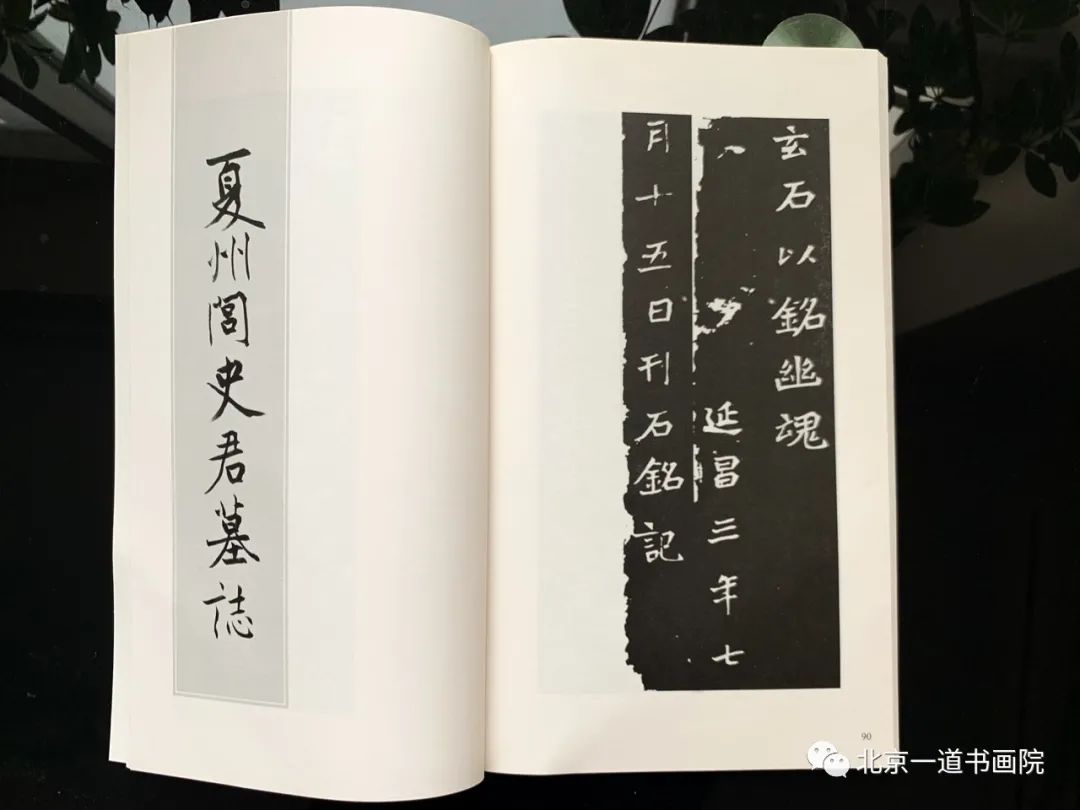 夏州閻史君墓誌
玄石以銘幽魂
延昌三年七
月十五日刊石銘記
90
北京一道书画院